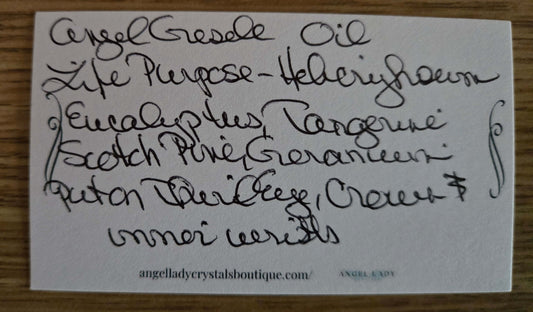 Angel Gresele Oil
Life Purpose - Helicryhsum
Eucalyptus, Tangerine
Scotch Pine, Geranium
put on Third Eye, Crown &
inner wrists
angelladycrystalsboutique.com/ ANGEL LADY